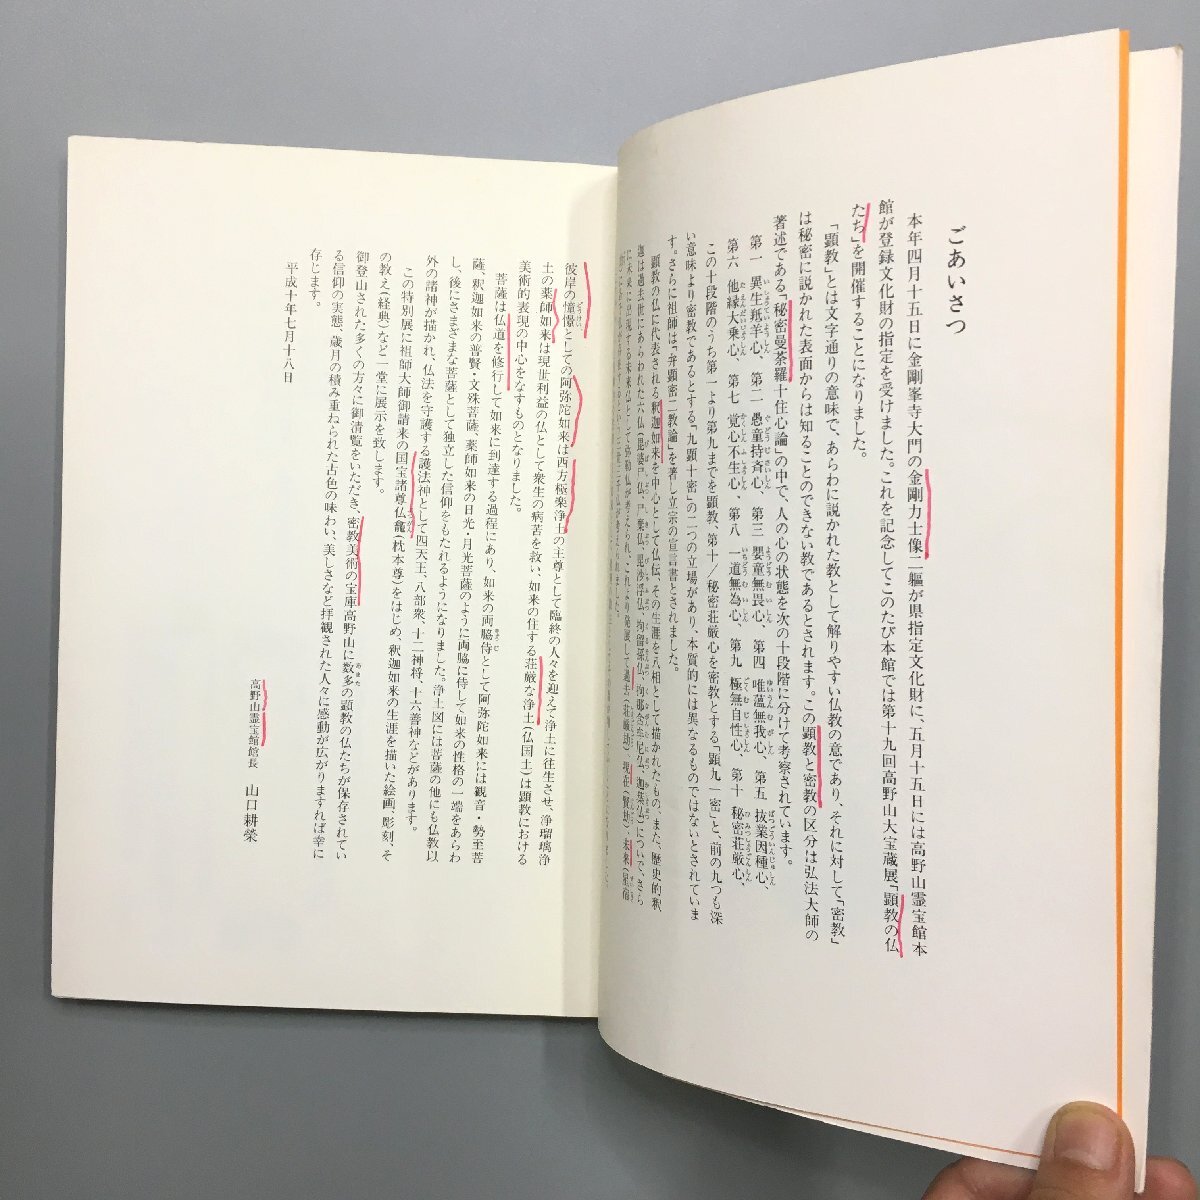 ごあいさつ
本年四月十五日に金剛峯寺大門の金剛力士像二軀が県指定文化財に、五月十五日には高野山霊宝館本
館が登録文化財の指定を受けました。これを記念してこのたび本館では第十九回高野山大宝蔵展「顕教の仏
たち」を開催することになりました。
「顕教」とは文字通りの意味で、あらわに説かれた教として解りやすい仏教の意であり、それに対して「密教」
は秘密に説かれた表面からは知ることのできない教であるとされます。この顕教と密教の区分は弘法大師の
著述である「秘密曼荼羅十住心論」の中で、人の心の状態を次の十段階に分けて考察されています。
第一 異生羝羊心、第二 愚童持斉心、第三 嬰童無畏心、第四 唯蘊無我心、第五 抜業因種心、
第六 他縁大乗心、第七 覚心不生心、第八 一道無為心、第九 極無自性心、第十 秘密荘厳心、
この十段階のうち第一より第九までを顕教、第十/秘密荘厳心を密教とする「顕九一密」と、前の九つも深
い意味より密教であるとする「九顕十密」の二つの立場があり、本質的には異なるものではないとされていま
す。さらに祖師は「弁顕密二教論」を著し立宗の宣言書とされました。
顕教の仏に代表される釈迦如来を中心として仏伝、その生涯を八相として描かれたもの、また、歴史的釈
迦は過去世にあらわれた六仏(毘婆尸仏、尸棄仏、毘沙浮仏、拘留孫仏、拘那含牟尼仏、迦葉仏)についで、さら
に未来に出現する未来仏として弥勒仏が考えられ、これより発展して過去(荘厳劫)現在(賢劫)、未来(星宿
彼岸の憧憬としての阿弥陀如来は西方極楽浄土の主尊として臨終の人々を迎えて浄土に往生させ、浄瑠璃浄
土の薬師如来は現世利益の仏として衆生の病苦を救い、如来の住する荘厳な浄土(仏国土)は顕教における
美術的表現の中心をなすものとなりました。
菩薩は仏道を修行して如来に到達する過程にあり、如来の両脇侍として阿弥陀如来には観音・勢至菩
薩、釈迦如来の普賢・文殊菩薩、薬師如来の日光・月光菩薩のように両脇に侍して如来の性格の一端をあらわ
し、後にさまざまな菩薩として独立した信仰をもたれるようになりました。浄土図には菩薩の他にも仏教以
外の諸神が描かれ、仏法を守護する護法神として四天王、八部衆、十二神将、十六善神などがあります。
この特別展に祖師大師御請来の国宝諸尊仏龕(枕本尊)をはじめ、釈迦如来の生涯を描いた絵画、彫刻、そ
の教え(経典)など一堂に展示を致します。
御登山された多くの方々に御清覧をいただき、密教美術の宝庫高野山に数多の顕教の仏たちが保存されてい
る信仰の実態、歳月の積み重ねられた古色の味わい、美しさなど拝観された人々に感動が広がりますれば幸に
存じます。
平成十年七月十八日
高野山霊宝館館長 山口耕榮